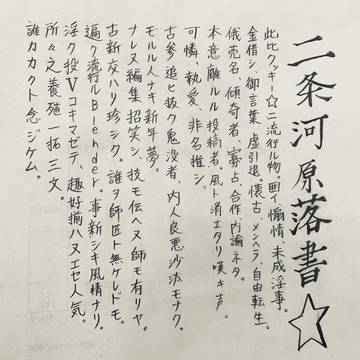 二条河原落書☆
此比クッキー☆ニ流行ル物。囲イ、惰情、未成淫事。
金借シ、御言葉、虚引退。懐古、メンヘラ、自由転生。
俄売名、傾奇者、寡占、合作、内論ネタ。
本意離ルル投稿者、風ト消エタリ嘆キ声。
可憐、執愛、非名推シ。
古参追ヒ抜ク鬼没者、内人良悪沙汰モナク。
モルル人ナキ新年ノ夢。
ナレヌ編集招笑シ、技モ伝ヘヌ師モ有リヤ。
古新交ハリ珍シク。誰ヲ師匠ト無ケレドモ。
遍ク流行ルBlender。事新シキ風情ナリ。
浮ク投Vコキマゼテ、趣好揃ハヌエセ人気。
所々之養殖一拓三文。
誰カカクト念ジケム。